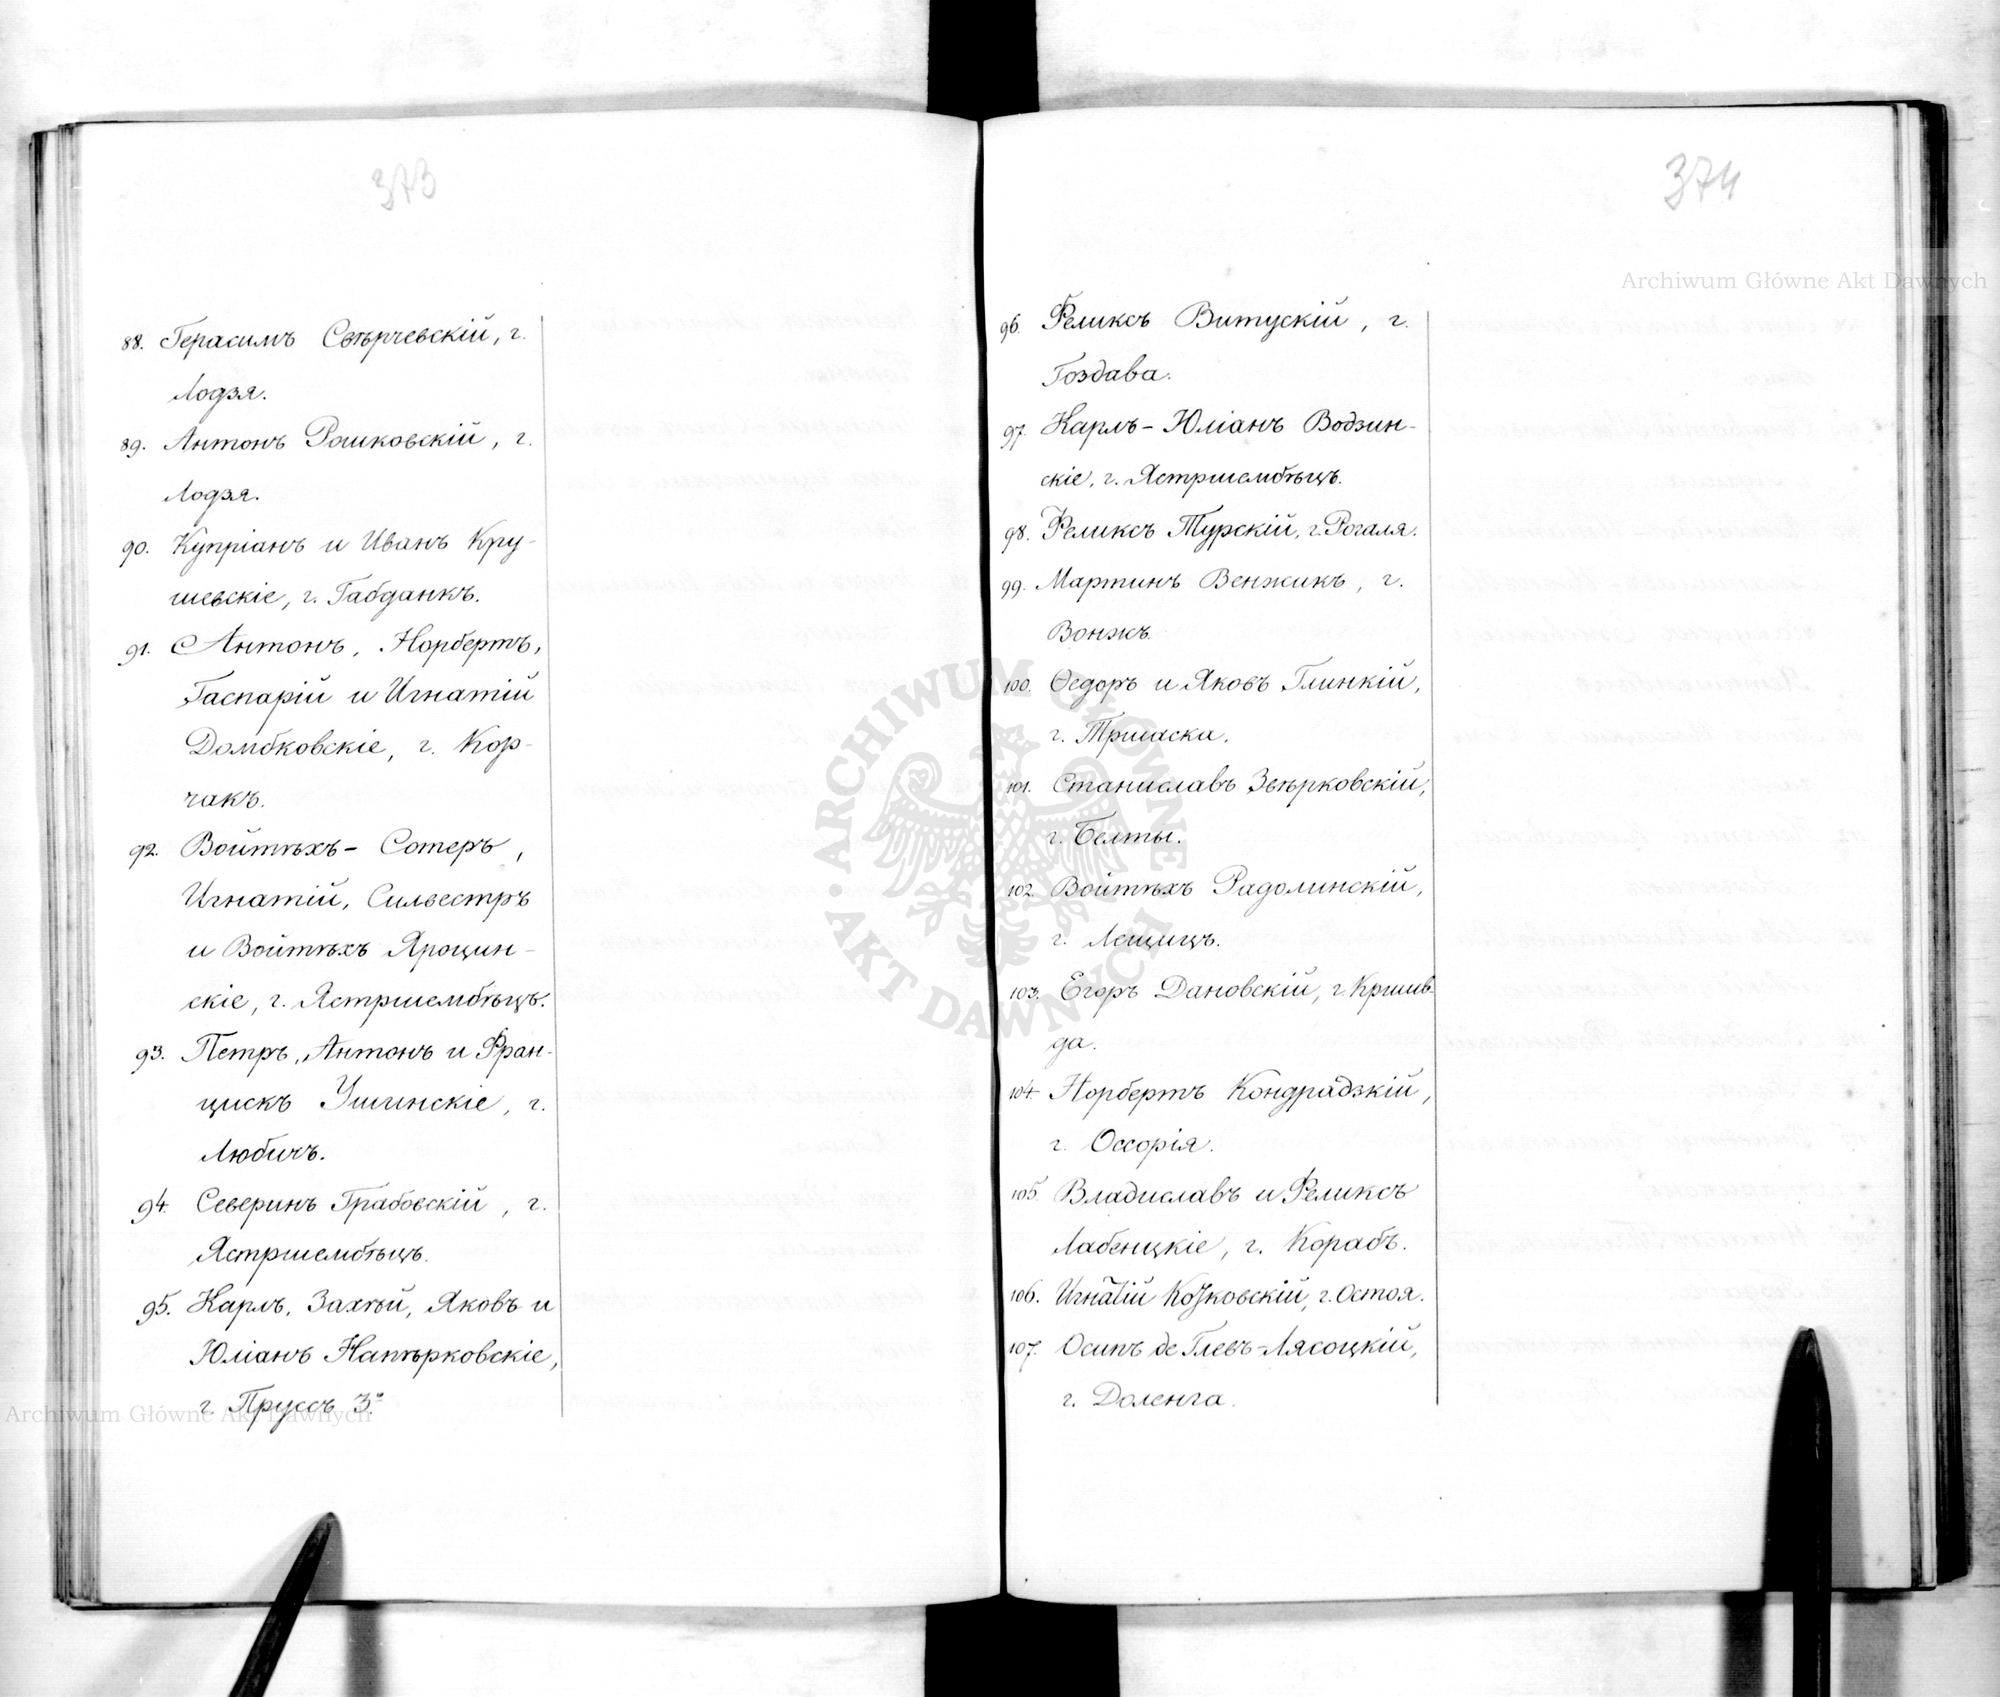 373
88. Герасимъ Свѣрчевскій, г.
Лодзя.
89. Антонъ Рошковскій, г.
Лодзя.
90. Купріанъ и Иванъ Кру-
шевскіе, г. Габданкъ.
91. Антонъ, Норбертъ,
Гаспарій и Игнатій
Домбковскіе, г. Кор-
чакъ.
92. Войтѣхъ - Сотеръ,
Игнатій, Сильвестръ
и Войтѣхъ Яроцин-
скіе, г. Ястршембѣцъ.
93. Петръ, Антонъ и Фран-
цискъ Ушинскіе, г.
Любичъ.
94. Северинъ Грабовскій, г.
Ястршембѣцъ.
95. Карлъ, Захѣй, Яковъ и
Юліанъ Напѣрковскіе,
г. Пруссъ 3.º
374
96. Феликсъ Витускій, г.
Гоздава.
97. Карлъ - Юліанъ Водзин-
скіе, г. Ястршембѣцъ.
98. Феликсъ Турскій, г. Рогаля.
99. Мартинъ Венжикъ, г.
Вонжъ.
100. Ѳедоръ и Яковъ Глинкій,
г. Тршаска.
101. Станиславъ Звѣрковскій,
г. Белты.
102. Войтѣхъ Радолинскій,
г. Лещицъ.
103. Егоръ Дановскій, г. Кршив-
да.
104. Норбертъ Кондрадзкій,
г. Оссорія.
105. Владиславъ и Феликсъ
Лабенцкіе, г. Корабъ.
106. Игнатій Козковскій, г. Остоя.
107. Осипъ де Глевъ-Лясоцкій,
г. Доленга.
Archiwum Główne Akt Dawnych
Archiwum Główne Akt Dawnych
ARCHIWUM GŁÓWNE AKT DAWNYCH